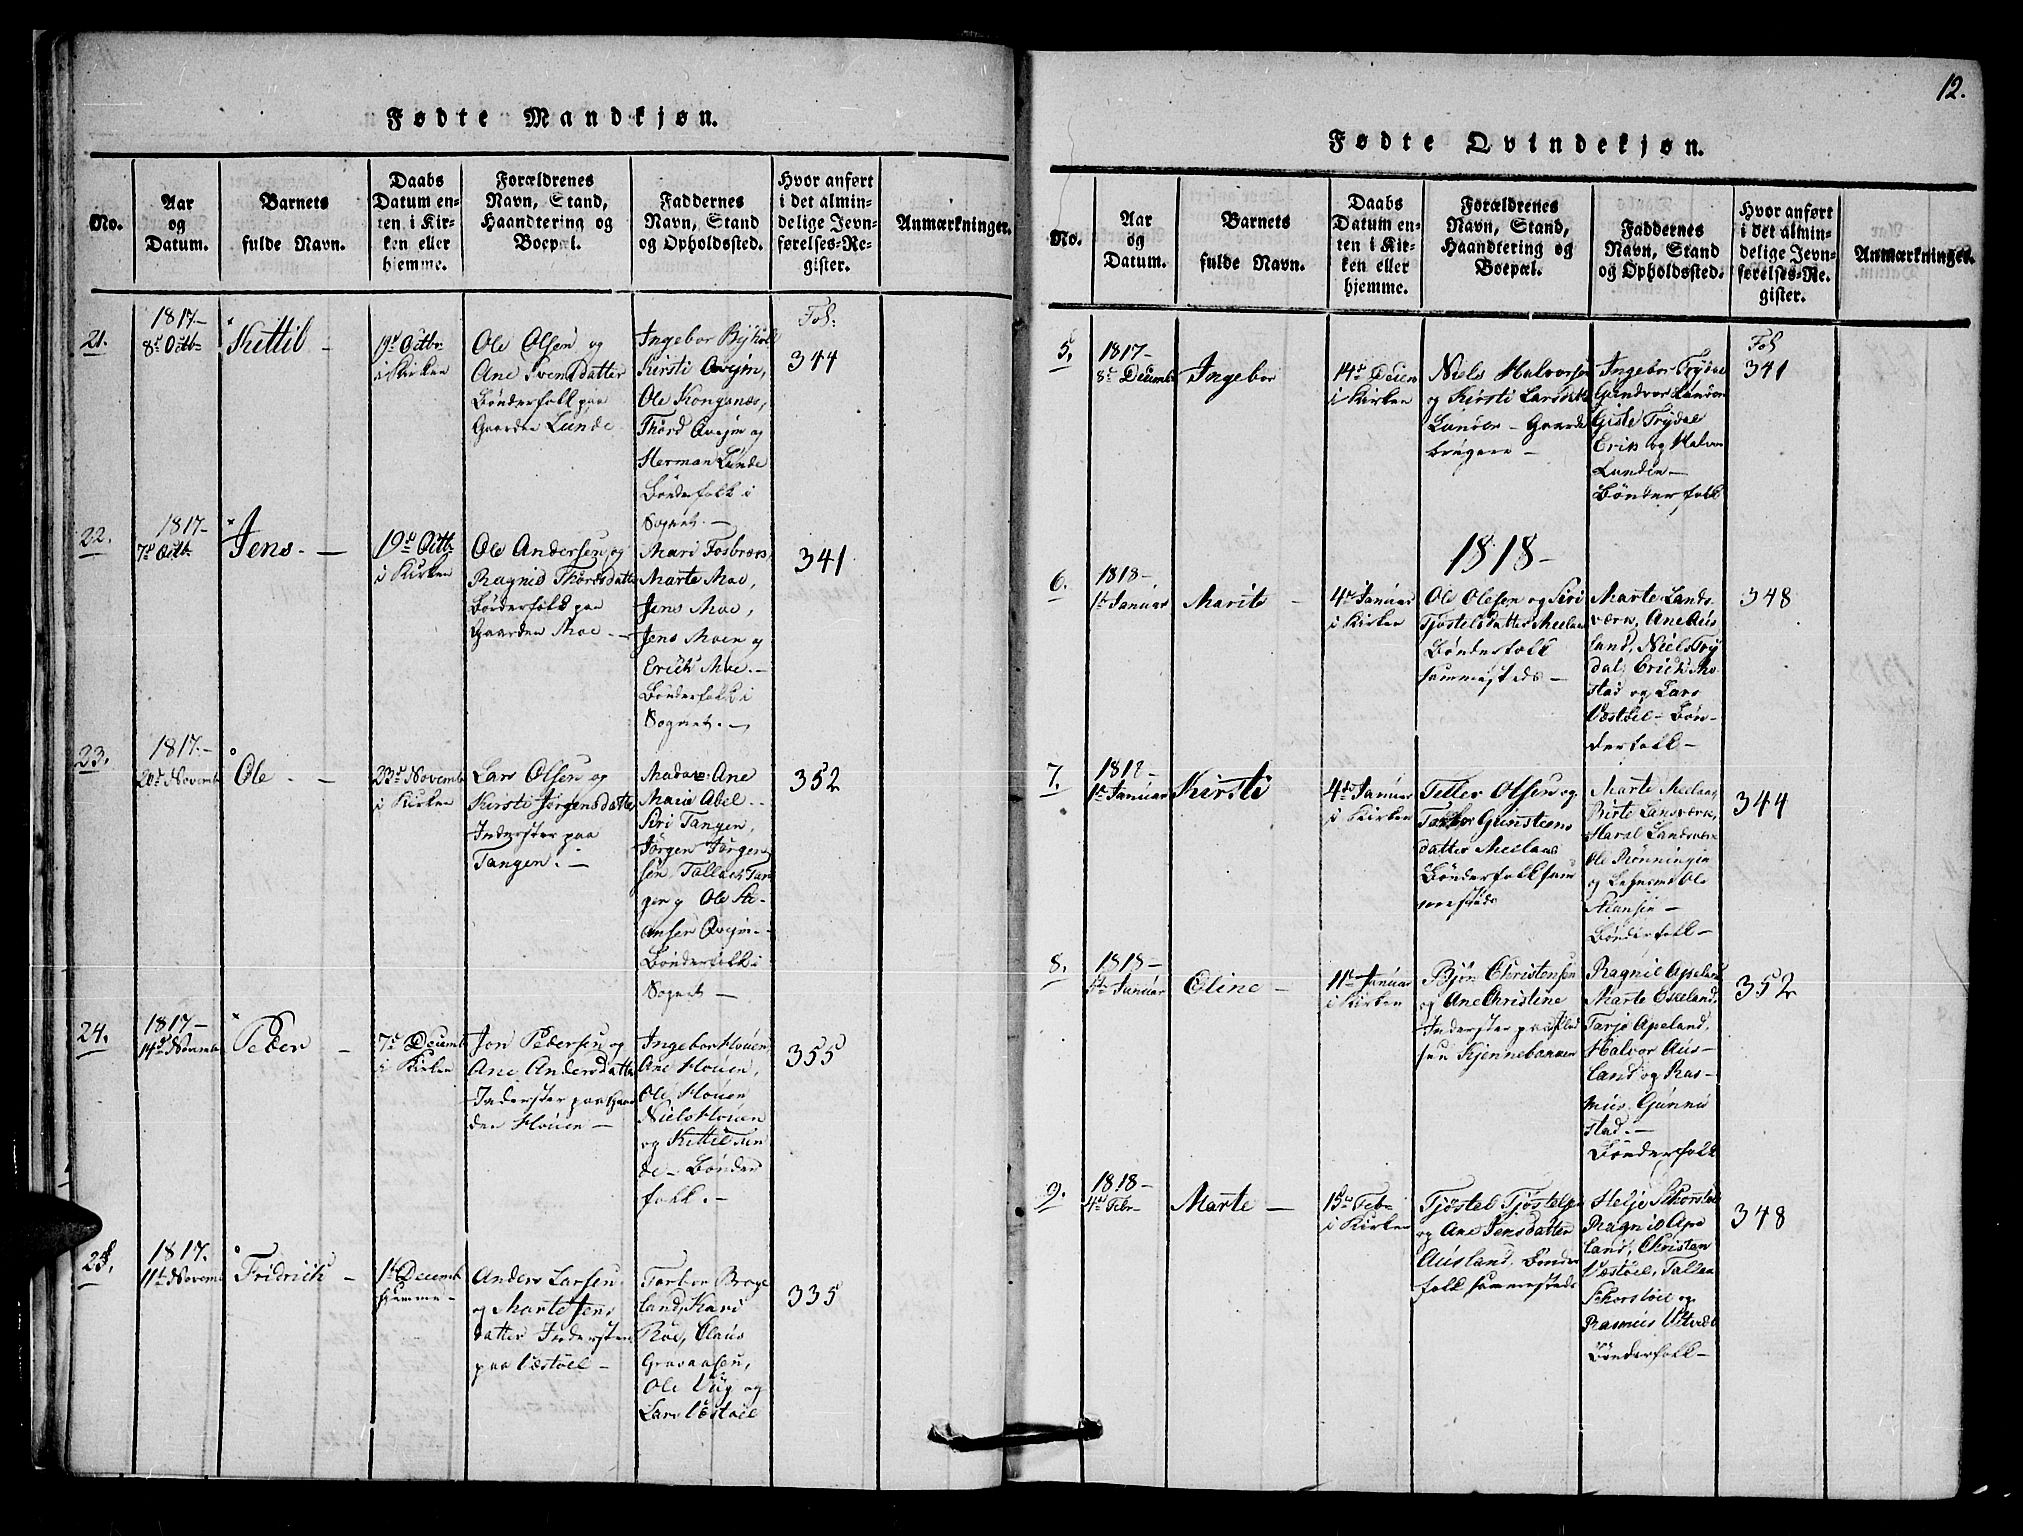 12.
Fødte Mandkjøn.
No.
Aar
og
Datum.
Barnets
fulde Navn.
Daabs
Datum en-
ten i Kir-
ken eller
hjemme.
Forældrenes
Navn, Stand,
Haandtering og
Boepæl.
Faddernes
Navn, Stand
og Opholdssted.
Hvor anført
i det almin-
delige Jevn-
førelses-Re-
gister.
Anmærkninger.
21.
1817-
8de Octb-
Kettil -
19de Octbr
i Kirken
Ole Olsen og
Ane Svensdatter
Bønderfolk paa
Gaarden Lunde
Ingebor
Kirsti Qvejm,
Ole Kongsnæs,
Thord Qvejm og
Herman Lunde
Bønderfolk i
Sognet. -
Fol:
344
22.
1817-
7de Octb-
Jens. -
19de Octb-
i Kirken
Ole Andersen og
Ragnild Thordsdatter
Bønderfolk paa
Gaarden Moe. -
Mari Fosbroes,
Marte Moe,
Jens Moe,
Jens Moen og
Erich Moe. -
Bønderfolk i
Sognet. -
341
23.
1817.-
20de Novemb
Ole - -
23de Novemb
i Kirken
Lars Olsen og
Kirsti Jørgensdatter
Inderster paa
Tangen. -
Madame Ane
Marie Abel -
Siri Tangen,
Jørgen Jørgen-
sen, Tallach Tan
gen og Ole Ste-
ansen Qvejm. -
Bønderfolk i
Sognet -
352
24.
1817-
14de Novemb
Peder -
7de Decemb
i Kirken
Jon Pedersen og
Ane Andersdatter
Inderster paa Gaar
den Houen -
Ingebor Houen,
Ane Houen,
Ole Houen
Niels Houen
og Kettil Sun
de - Bønder
folk. -
355
25.
1817.
11te Novemb
Fridrich -
1te Decemb
hjemme -
Anders Larsen
og Marte Jens
datter Inderster
paa Væstøel -
Torbor Broge
land, Kari
Röe, Claus
Gravaasen,
Ole Viig og
Lars Væstøel
335
Fødte Qvindekjøn.
No.
Aar
og
Datum.
Barnets
fulde Navn.
Daabs
Datum en-
ten i Kir-
ken eller
hjemme.
Forældrenes
Navn, Stand,
Haandtering og
Boepæl.
Faddernes
Navn, Stand
og Opholdssted.
Hvor anført
i det almin-
delige Jevn-
førelses-Re-
gister.
Anmærkninger.
5.
1817-
8de Decemb
Ingebor
14de Decem
i Kirken
Niels Halvorsen
og Kirsti Larsdatter
Lunden - Gaard
brugere -
Ingebor Trydal
Gundvor Lunden
Giste Trydal
Erik og Halvor
Lunden -
Bønderfolk
Fol
341
1818-
6.
1818-
1te Januar
Marite -
4de Januar
i Kirken
Ole Olesen og Siri
Tjostelsdatter Meelaas
Bønderfolk
sammesteds -
Marte Lands-
værk, Ane Aus
land, Niels Try
dal, Erich Mo-
stad og Lars
Væstøel - Bøn-
derfolk -
348
7.
1818-
1te Januar
Kirsti
4de Januar
i Kirken
Tellev Olsen og
Torbor Gunsteens
datter Meelaas
Bønderfolk sam
mesteds
Marte Meelaas,
Birte Landsværk,
Harol Landsværk
Ole Rønningen
og Ole
Bønderfolk -
344
8.
1818-
4de Januar
Eline -
11te Januar
i Kirken
Bjør Christensen
og Ane Christine
Inderster paa Plad
sen
Ragnil Apeland
Marte Eskeland,
Tarjo Apeland,
Halvor Aus-
land og Ras-
mus Gunnis
stad. -
Bønderfolk
352
9.
1818-
4de Febr-
Marte -
15de Febr
i Kirken
Tjostel Tjostelsen
og Ane Jensdatter
Ausland, Bønder
folk sammesteds
Helje Skorstøel
Ragnild Ape
land, Christan
Væstøel, Tallan
Skorstøel og
Rasmus
Bønderfolk -
348